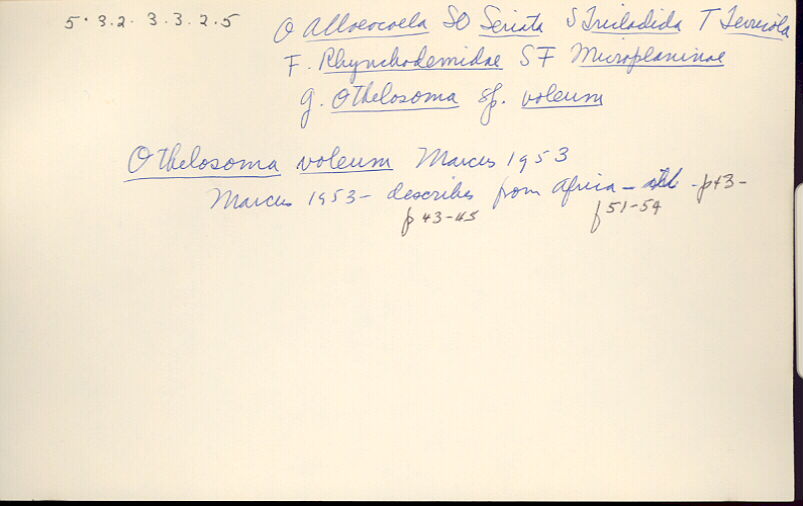 5·3.2.3.3.2.5
O Alloeocoela SO Seriata S Tricladida T Terricola
F. Rhynchodemidae SF Microplaninae
g. Othelosoma sp. voleum
Othelosoma voleum Marcus 1953
Marcus 1953 - describes from Africa - - p43 -
p 43-45 p 51-54